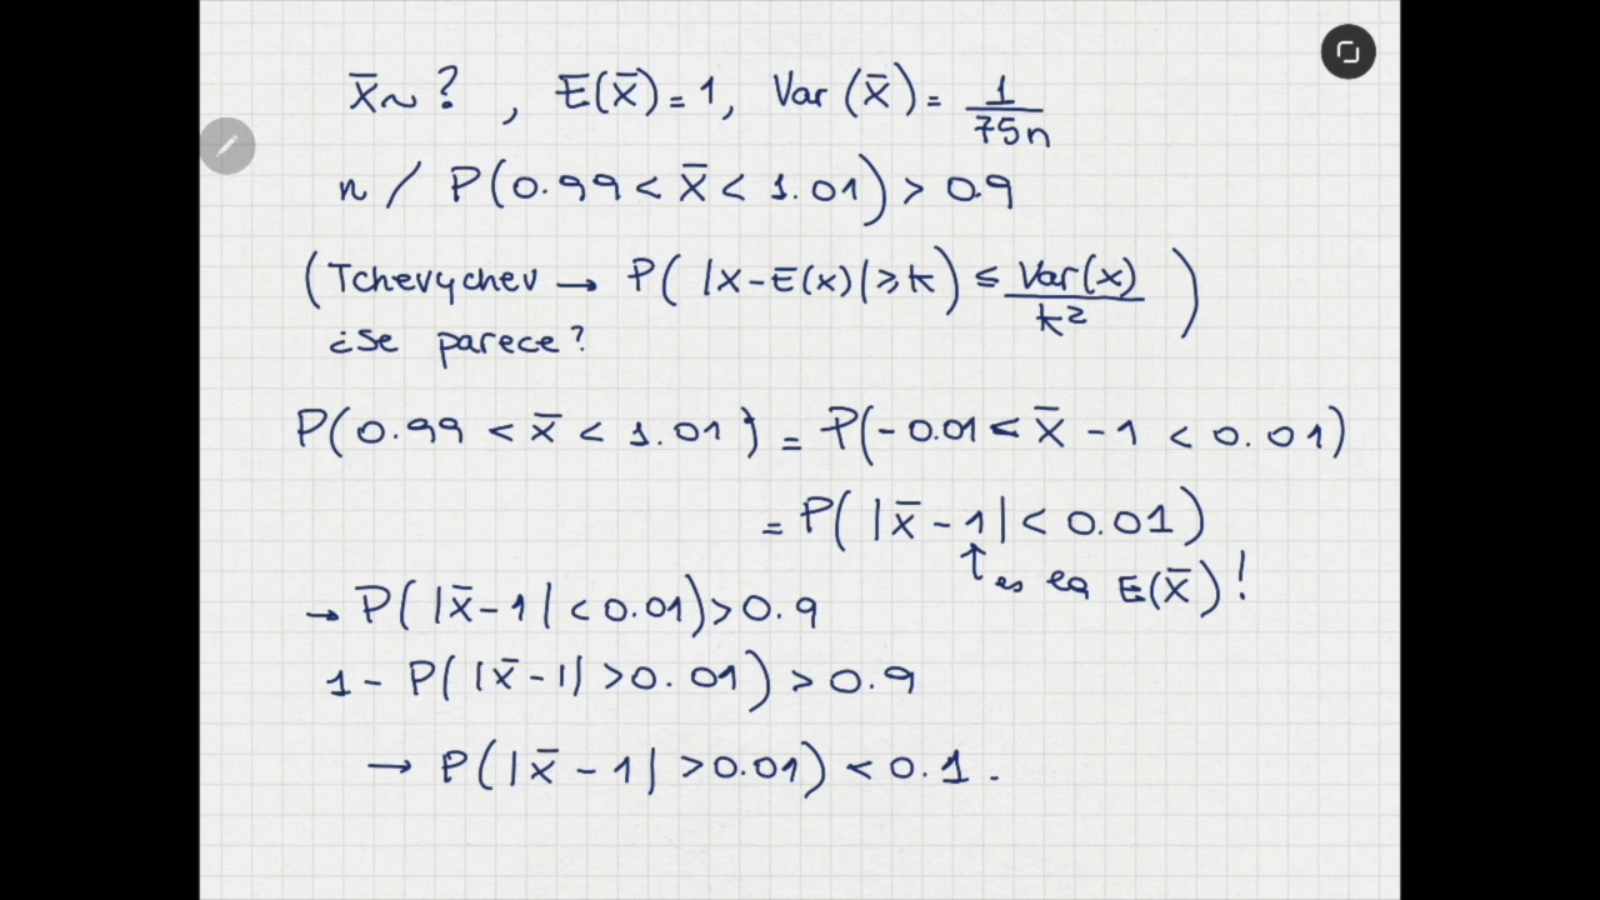 x̄ ~ ? , E(x̄) = 1, Var (x̄) = 1/75n
n / P(0.99 < x̄ < 1.01) > 0.9
(Tchevychev → P( |x - E(x)| ⩾ k) ≤ Var(x)/k² )
¿se parece?
P(0.99 < x̄ < 1.01) = P(-0.01 < x̄ - 1 < 0.01)
= P( |x̄ - 1| < 0.01)
↑ es la E(x̄)!
→ P( |x̄ - 1| < 0.01) > 0.9
1 - P( |x̄ - 1| > 0.01) > 0.9
→ P( |x̄ - 1| > 0.01) < 0.1.